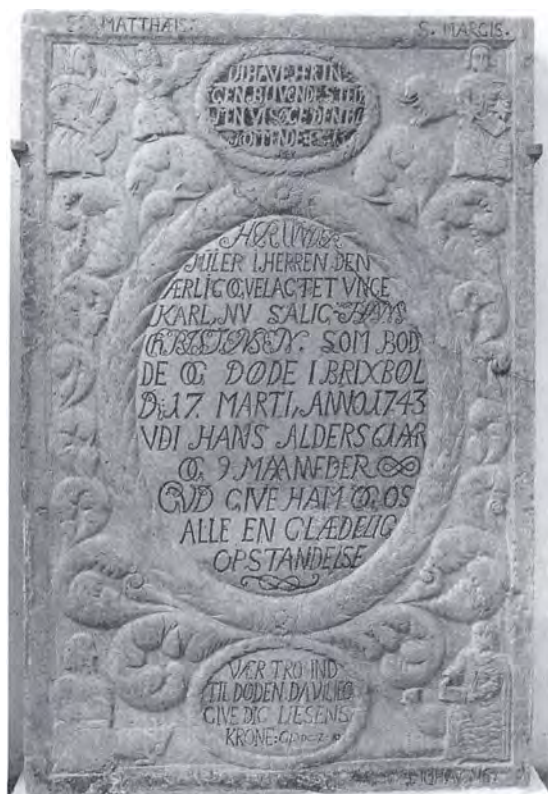 S. MATTHÆIS.
S. MARCIS.
VI HAVE HER IN
GEN BLIVENDE STED
MEN VI SØGE DEN TIL
KOMENDE
HER UNDER
HVILER I HERREN DEN
ÆRLIG OG VELACTET UNGE
KARL, NV SALIG HANS
CHRISTENSEN. SOM BOD
DE OG DØDE I BRIXBØL
D. 17. MARTI, ANNO 1743
VDI HANS ALDERS AAR
OG 9 MAANEDER
GUD GIVE HAM OG OS
ALLE EN GLÆDELIG
OPSTANDELSE
VÆR TRO IND
TIL DØDEN DA VIL IEG
GIVE DIG LIFSENS
KRONE: